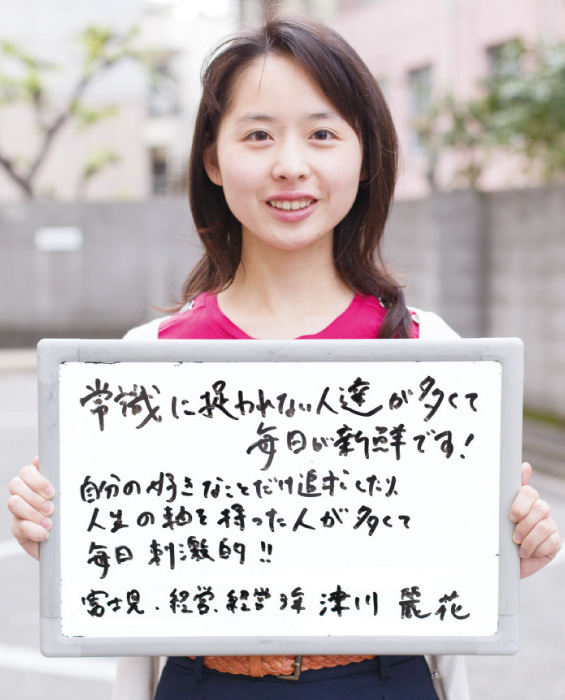 常識に捉われない人達が多くて
毎日が新鮮です!
自分の好きなことだけ追求したり、
人生の軸を持った人が多くて
毎日 刺激的!!
富士見・経営、経営 津川 麗花